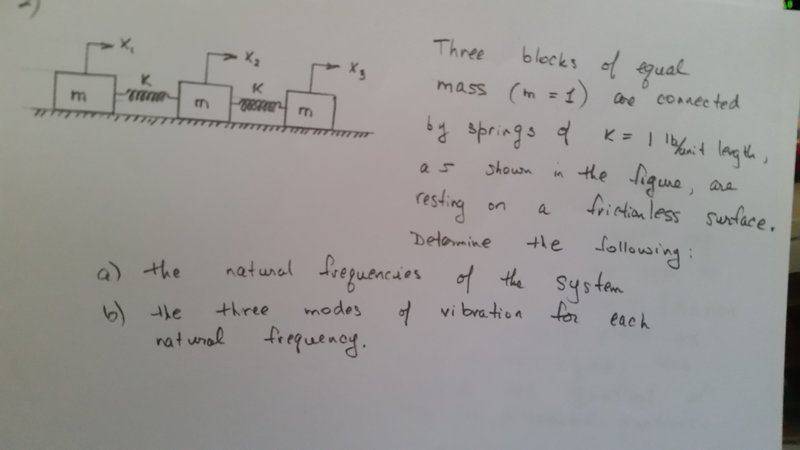 X₁
X₂
X₃
K
K
m
m
m
Three blocks of equal
mass (m = 1) are connected
by springs of K = 1 lb/unit length,
as shown in the figure, are
resting on a frictionless surface.
Determine the following:
a) the natural frequencies of the system
b) the three modes of vibration for each
natural frequency.